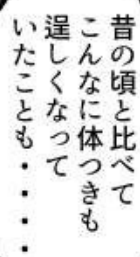 昔の頃と比べて
こんなに体つきも
逞しくなって
いたことも・・・・